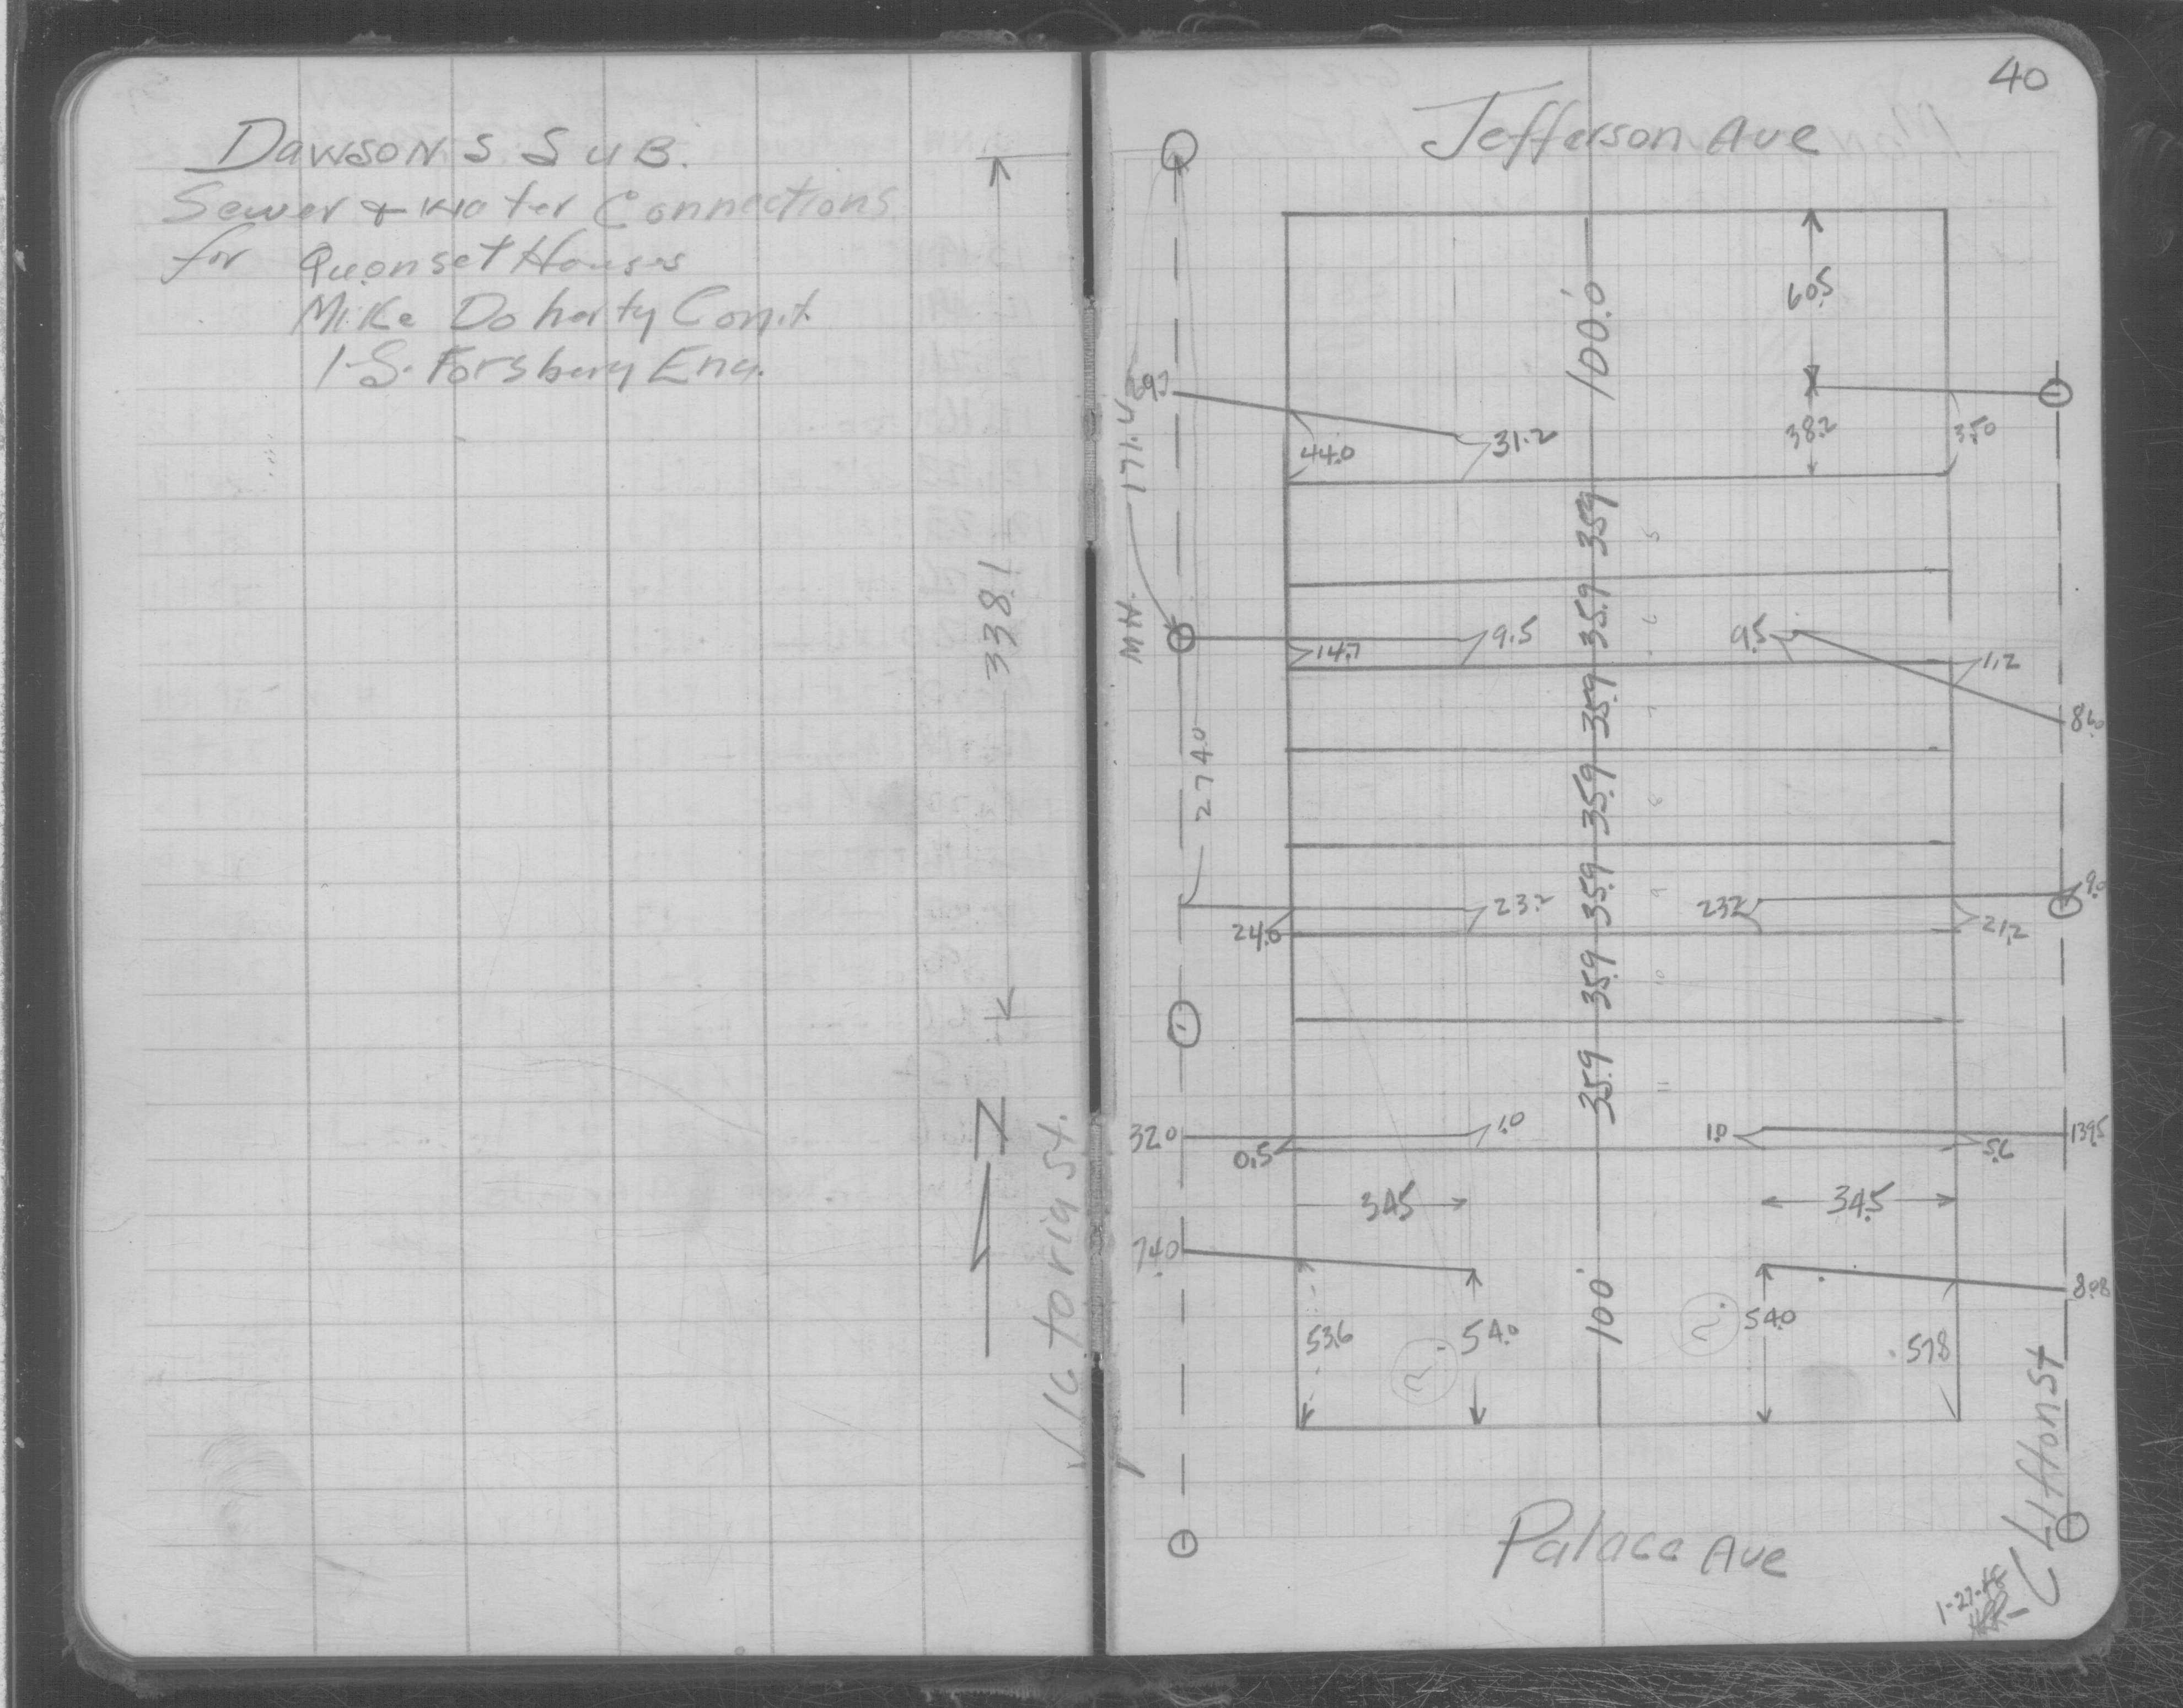 DAWSONS SUB.
Sewer & Water Connections
for Quonset Houses
Mike Doherty Cont.
Forsbury Eng.
338.1
N
Victoria St.
40
Jefferson Ave
100.0'
60.5
38.2
35.0
31.2
44.0
171.0
MH
35.9
5
35.9
6
9.5
14.7
9.5
1.2
35.9
7
274.0
35.9
8
35.9
9
23.2
24.0
23.2
21.2
9.0
35.9
10
35.9
11
32.0
1.0
0.5
1.0
5.6
139.5
34.5
34.5
74.0
53.6
54.0
100'
54.0
57.8
Clifton St
Palace Ave
1-27-48